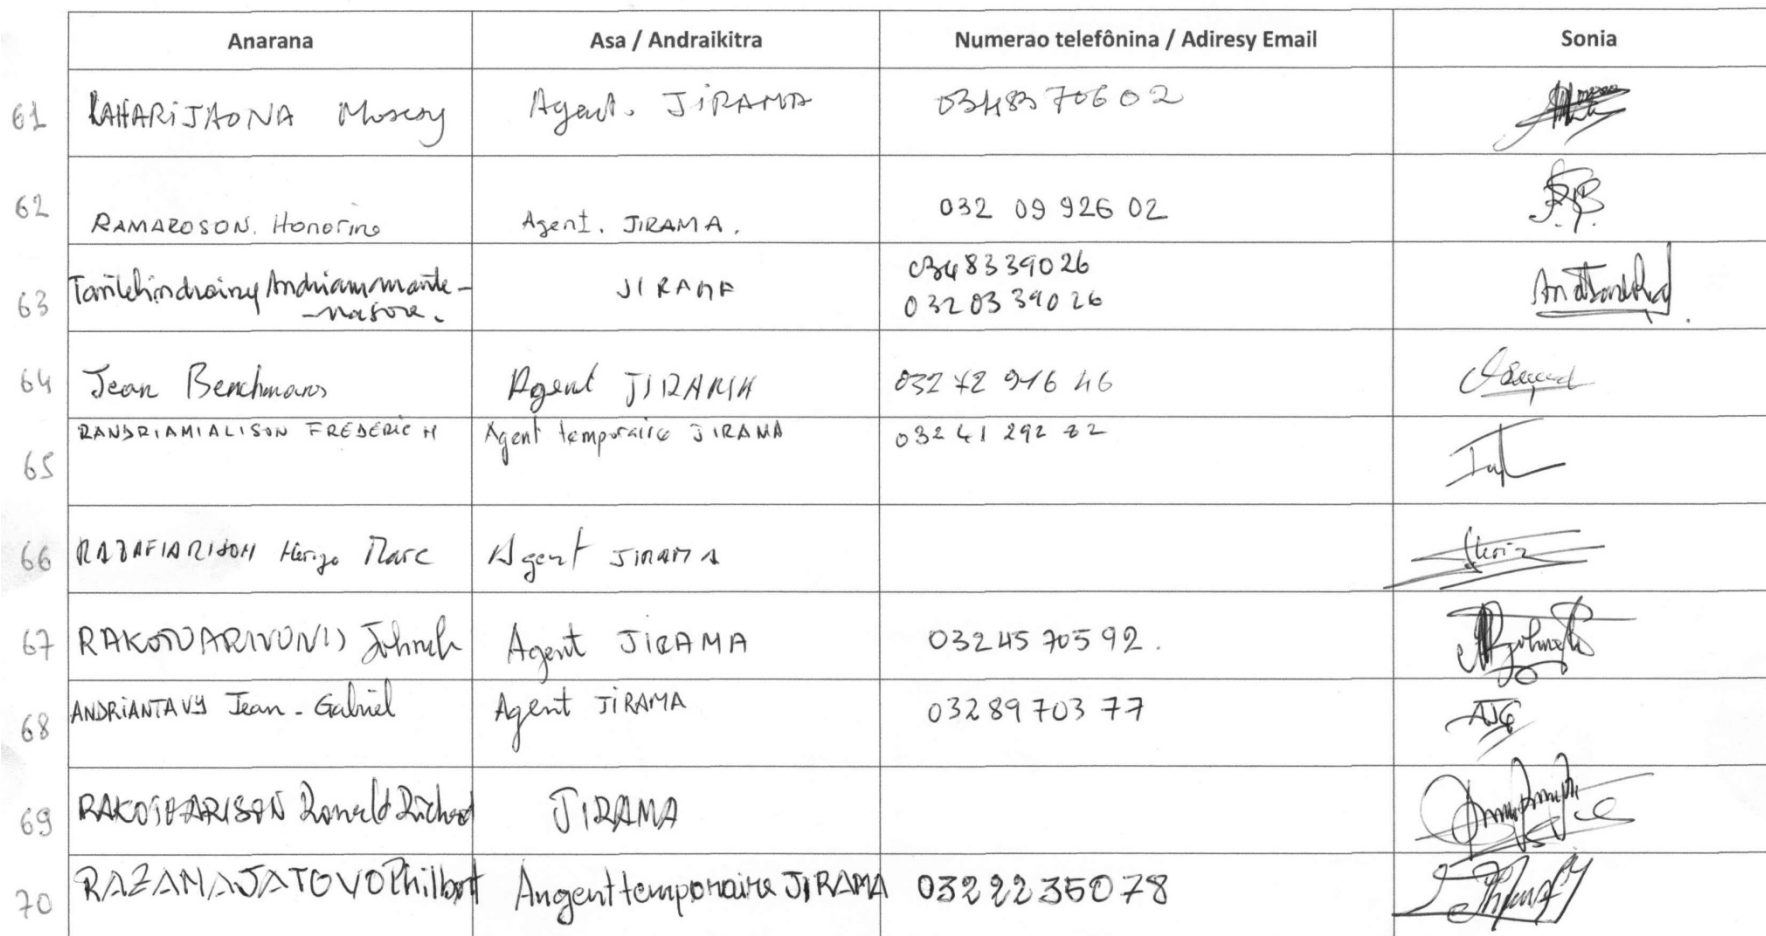 Anarana Asa / Andraikitra Numerao telefônina / Adiresy Email Sonia
61 RAHARIJAONA Agent. JIRAMA 0348370602
62 RAMAROSON. Honorine Agent. JIRAMA. 032 09 926 02
63 JIRAMA 0348339026
0320339026
64 Jean Benchmans Agent JIRAMA 032 72 916 46
65 RANDRIAMIALISON FREDERIC H Agent temporaire JIRAMA 032 41 292 22
66 RAZAFIARISON Herizo Marc Agent JIRAMA
67 Agent JIRAMA 0324570592.
68 ANDRIANTAVY Jean-Gabriel Agent JIRAMA 0328970377
69 RAKOTOARISON Ronald Richard JIRAMA
70 RAZANAJATOVO Philbert Angent temporaire JIRAMA 0322235078